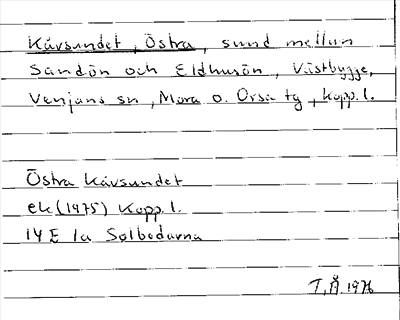 Kåvsundet, Östra, sund mellan
Sandön och Eldhusön, Västbygge,
Venjans sn, Mora o. Orsa tg, Kopp. l.
Östra Kåvsundet
ek (1975) Kopp. l.
14E 1a Sølbodarna
T.Å. 1976